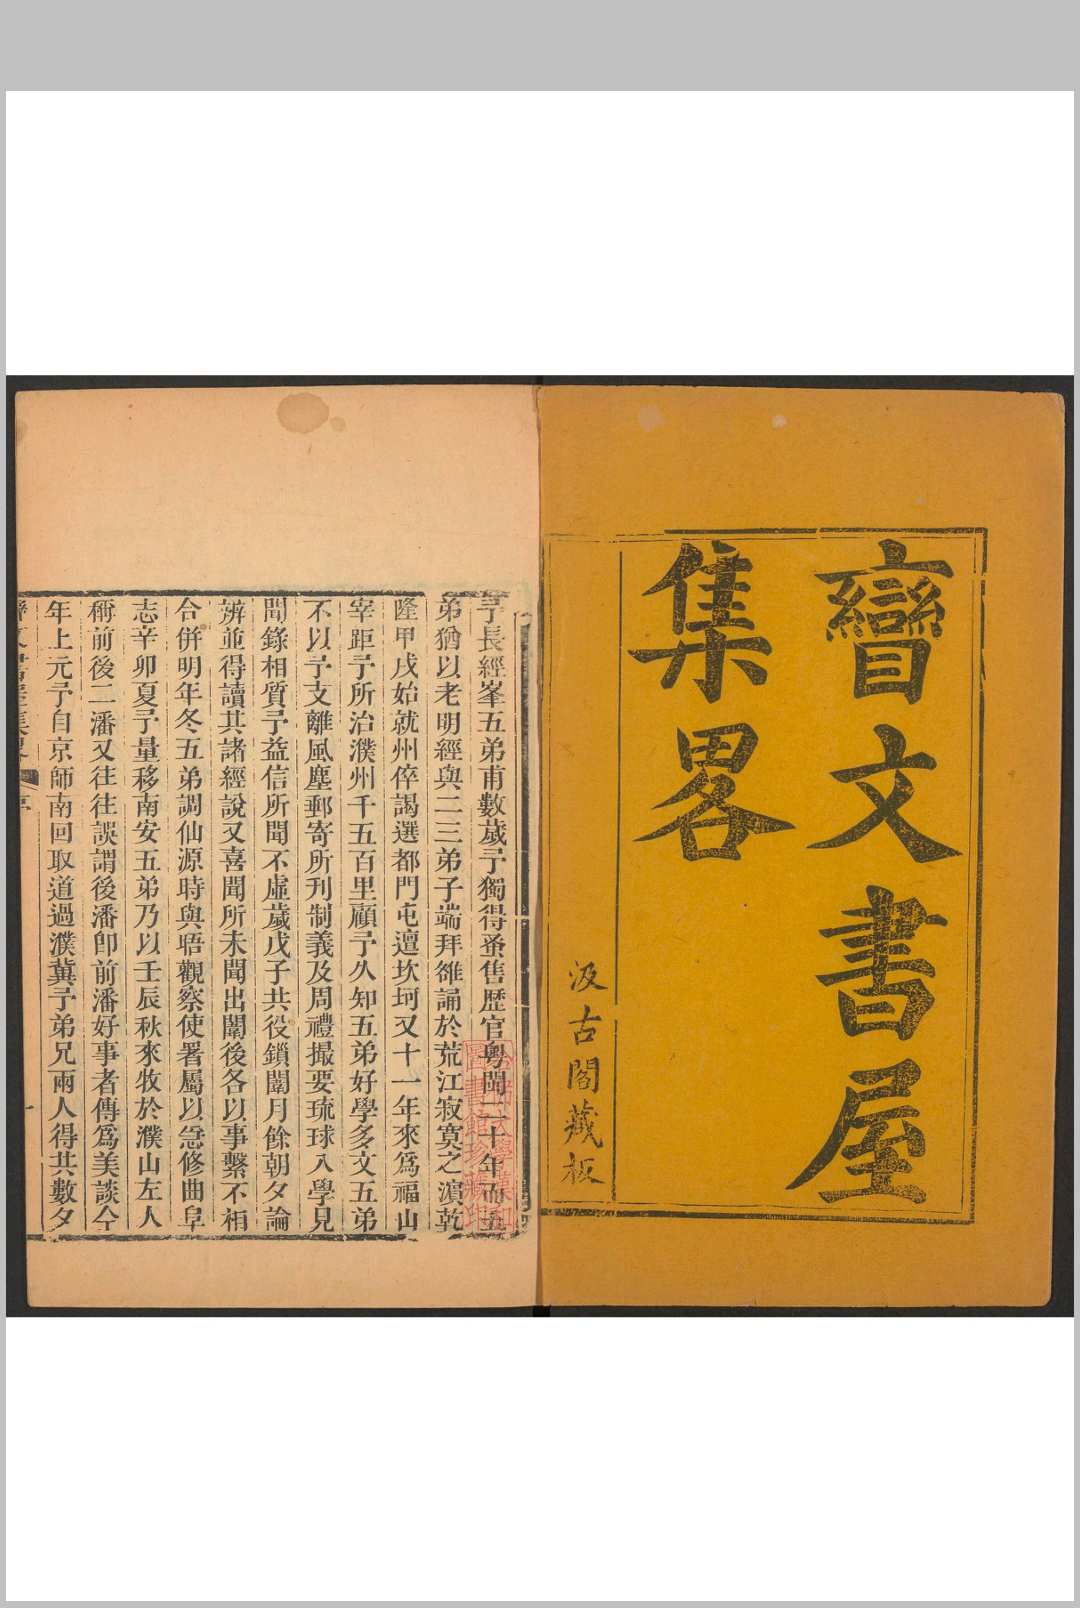 矕文書屋
集畧
汲古閣藏板
予長經峯五弟甫數歲予獨得蚤售歷官粵閩二十年而五
弟猶以老明經與二三弟子端拜雒誦於荒江寂寞之濵乾
隆甲戌始就州倅謁選都門屯邅坎坷又十一年來爲福山
宰距予所治濮州千五百里顧予久知五弟好學多文五弟
不以予支離風塵郵寄所刊制義及周禮撮要琉球入學見
聞錄相質予益信所聞不虛歲戊子共役鎖闈月餘朝夕論
辨並得讀其諸經說又喜聞所未聞出闈後各以事繫不相
合併明年冬五弟調仙源時與晤觀察使署屬以急修曲阜
志辛卯夏予量移南安五弟乃以壬辰秋來牧於濮山左人
稱前後二潘又往往誤謂後潘卽前潘好事者傳爲美談今
年上元予自京師南回取道過濮冀予弟兄兩人得共數夕